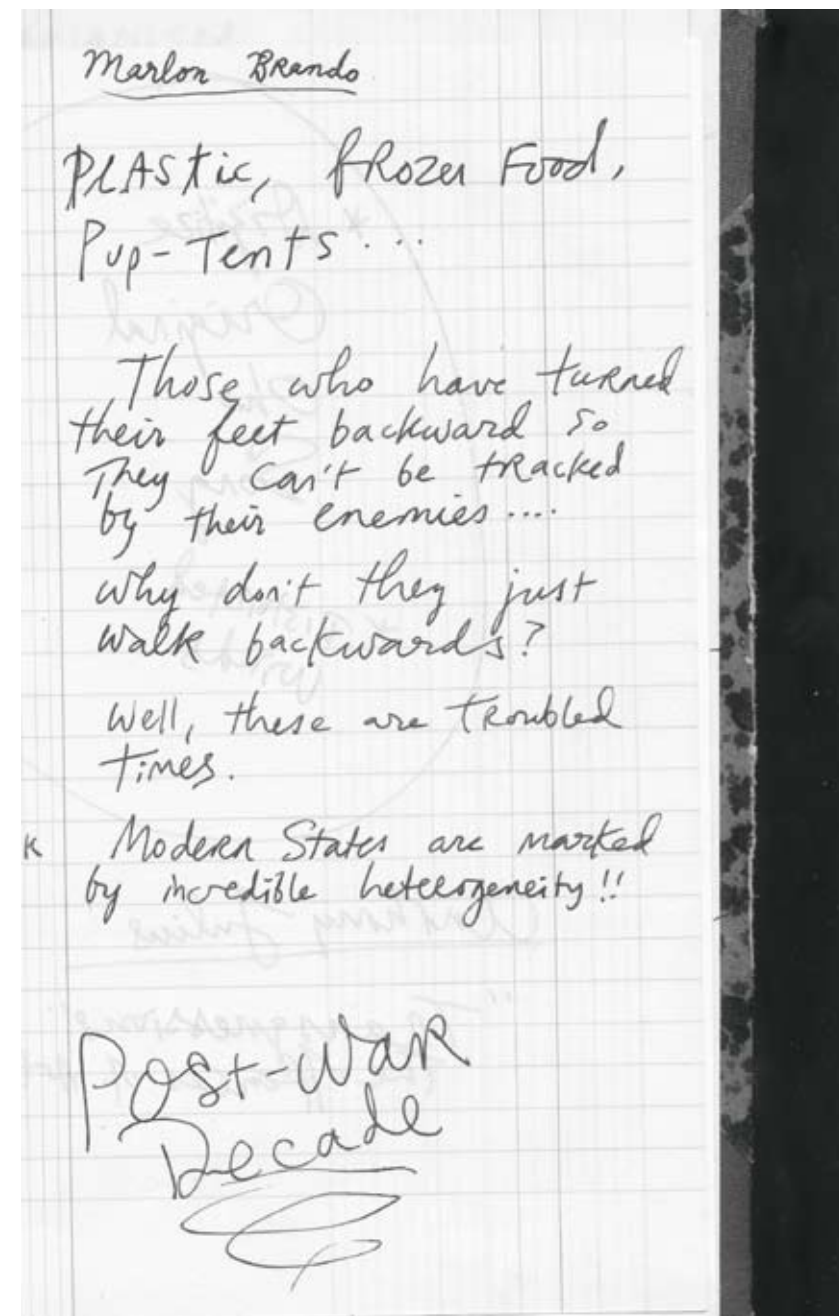 Marlon Brando
Plastic, frozen Food,
Pup-Tents...
Those who have turned
their feet backward so
They can't be tracked
by their enemies....
why don't they just
walk backwards?
Well, these are troubled
times.
K Modern States are marked
by incredible heterogeneity!!
Post-War
Decade